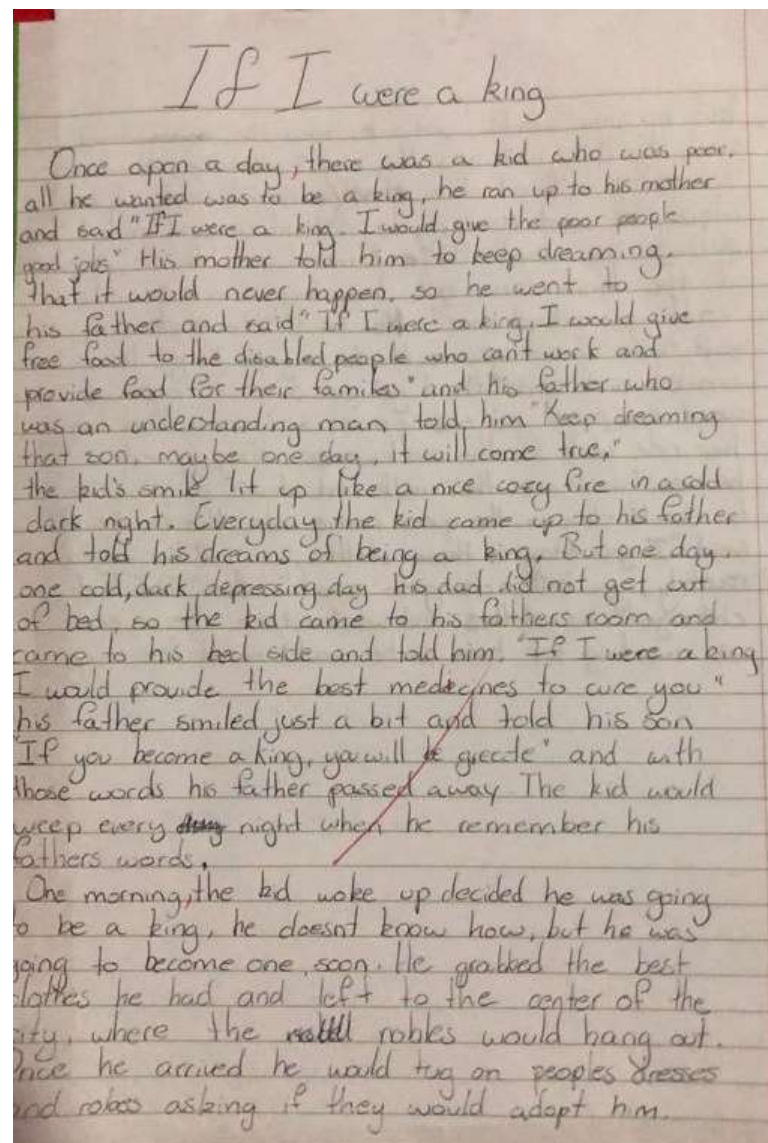 If I were a king
Once apon a day, there was a kid who was poor.
all he wanted was to be a king, he ran up to his mother
and said "If I were a king. I would give the poor people
good jobs" His mother told him to keep dreaming.
that it would never happen. so he went to
his father and said "If I were a king, I would give
free food to the disabled people who can't work and
provide food for their familes" and his father who
was an understanding man told him "Keep dreaming
that son. maybe one day, it will come true,"
the kid's smile lit up like a nice cozy fire in a cold
dark night. Everyday the kid came up to his father
and told his dreams of being a king. But one day.
one cold, dark, depressing day his dad did not get out
of bed, so the kid came to his fathers room and
came to his bed side and told him. "If I were a king
I would provide the best medecines to cure you"
his father smiled just a bit and told his son
"If you become a king, you will be" and with
those words his father passed away The kid would
weep every night when he remember his
fathers words.
One morning, the kid woke up decided he was going
to be a king, he doesnt know how, but he was
going to become one, soon. He grabbed the best
clothes he had and left to the center of the
city, where the nobles would hang out.
Once he arrived he would tug on peoples dresses
and robes asking if they would adopt him.